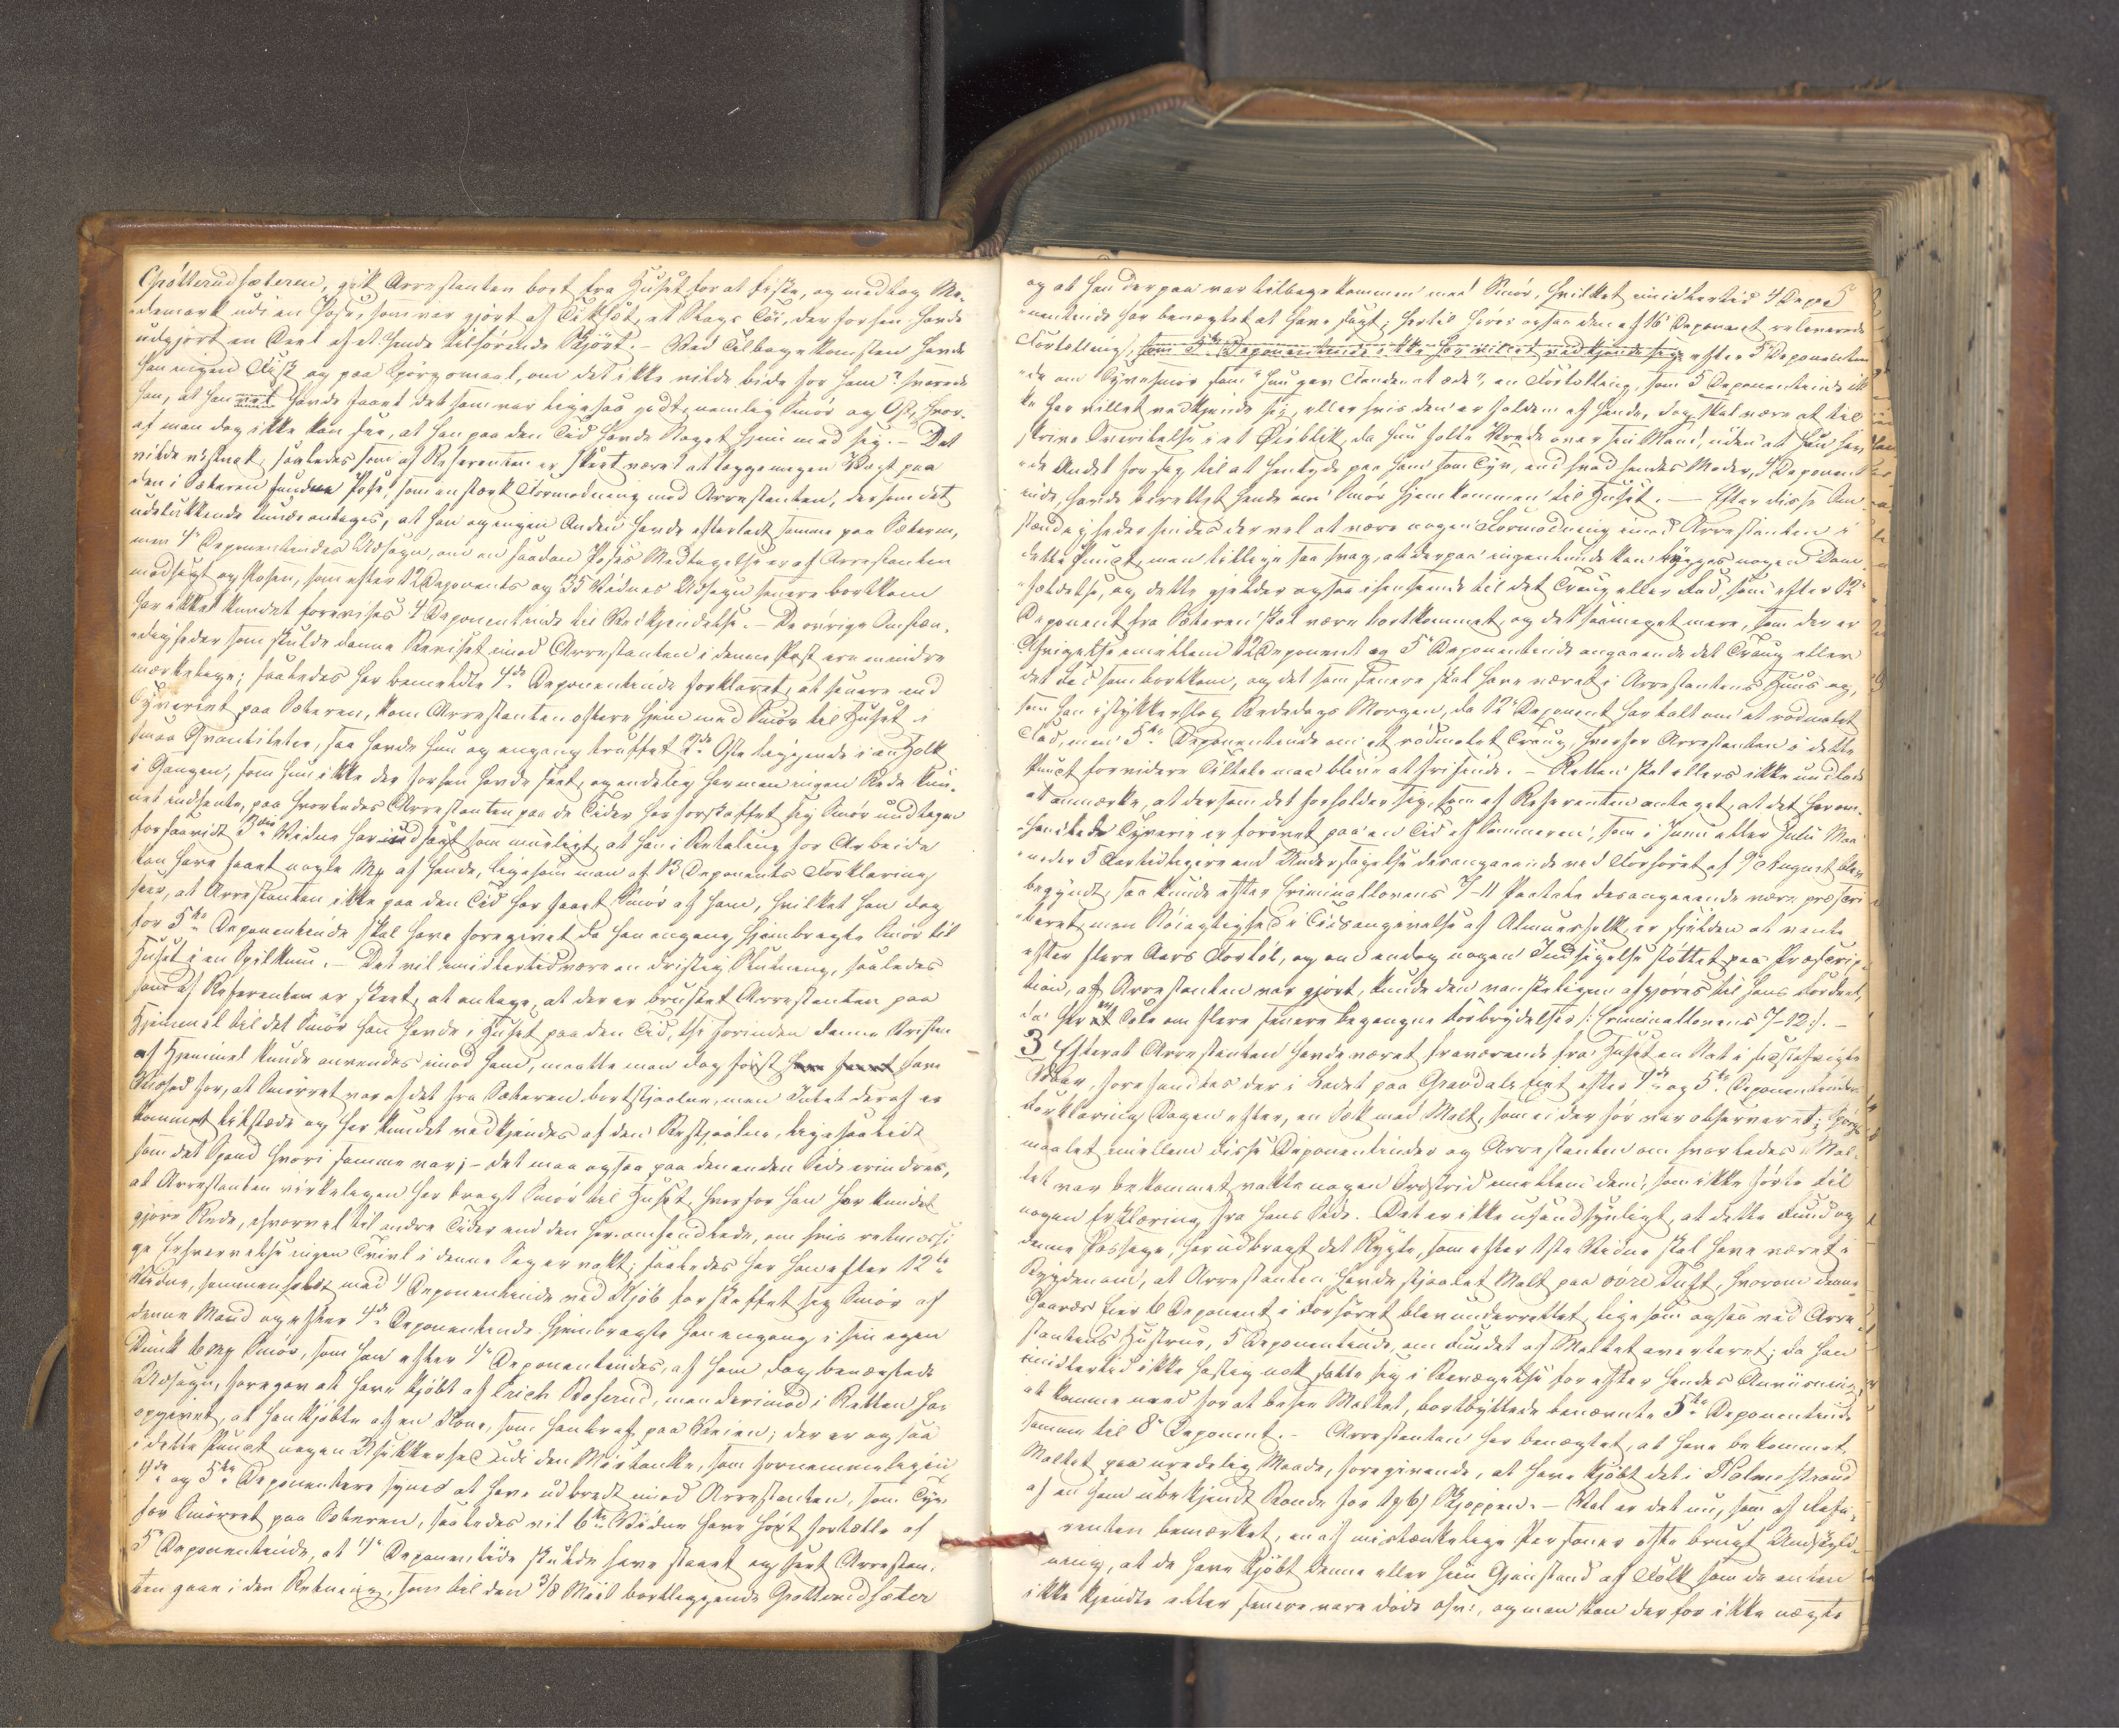 Grötterudsæteren, gik Arrestanten bort fra Huset for at fiske, og medtog Ma-
demark udi en Pose, som var gjort af et Slags Töi, der forhen havde
udgjort en Deel af et hende tilhörende Skjört. – Ved Tilbagekomsten havde
han ingen Fisk og paa Spörgsmaal, om det ikke vilde bide for ham? svarede
han, at han havde faaet det som var ligesaa godt, nemlig Smör og Ost, hvor-
af man dog ikke kan see, at han paa den Tid havde Noget hjem med sig. – Det
vilde vistnok, saaledes som af Referenten er skeet været at lægge megen Vægt paa
den i Sæteren fundne Pose, som en stærk Formodning mod Arrestanten, dersom det
udelukkende kunde antages, at han og ingen Anden havde efterladt samme paa Sæteren,
men 4de Deponentindes Udsagn, om en saadan Poses Medtagelse er af Arrestanten
modsagt og Posen, som efter 12 Deponents og 35 Vidnes Udsagn senere bortkom
har ikke kundet forevises 4 Deponentinde til Vedkjendelse. – De övrige Omstæn-
digheder som skulde danne Beviset imod Arrestanten i denne Post ere mindre
mærkelige; saaledes har bemeldte 4de Deponentinde forklaret, at senere end
Tyveriet paa Sæteren, kom Arrestanten oftere hjem med Smör til Huset i
smaa Qvantiteter, saa havde hun og engang truffet 2de Oste liggende i en Holk
i Gangen, som hun ikke der forhen havde seet, og endelig har man ingen Rede kun-
net indhente, paa hvorledes Arrestanten paa de Tider har forskaffet sig Smör undtagen
forsaavidt 3die Vidne har udsagt som muligt, at han i Betaling for Arbeide
kan have faaet nogle Mk af hende, ligesom man af 13 Deponents Forklaring
seer, at Arrestanten ikke paa den Tid har faaet Smör af ham, hvilket han dog
for 5te Deponentinde skal have foregivet da han engang hjembragte Smör til
Huset i en Spilkum. – Det vil imidlertid være en dristig Slutning, saaledes
som af Referenten er skeet, at antage, at der er brustet Arrestanten paa
Hjemmel til det Smör han havde i Huset paa den Tid, thi forinden denne Bristen
af Hjemmel kunde anvendes imod ham, maatte man dog först have
Vished for, at Smörret var af det fra Sæteren bortstjaalne, men Intet deraf er
kommet tilstæde og har kundet vedkjendes af den Bestjaalne, ligesaalidt
som det Spand hvori samme var; – det maa ogsaa paa den anden Side erindres,
at Arrestanten virkeligen har bragt Smör til Huset, hvorfor han har kundet
gjöre Rede, ehvorvel til andre Tider end den her omhandlede, om hvis retmæssi-
ge Erhvervelse ingen Tvivl i denne Sag er vakt; saaledes har han efter 12te
Vidne, sammenholdt med 4 Deponentinde ved Kjöb forskaffet sig Smör af
denne Mand og efter 4de Deponentinde hjembragte han engang i sin egen
Dunk 16 Mk Smör, som han efter 4de Deponentindes, af ham dog benægtede
Udsagn, foregav at have kjöbt af Erich Boserud, men derimod i Retten har
opgivet, at han kjöbte af en Kone, som han traf paa Veien; der er ogsaa
i dette Punct nogen Usikkerhed udi den Mistanke, som fornemmeligen
4de og 5te Deponentere synes at have udbredt imod Arrestanten, som Tyv
for Smörret paa Sæteren, saaledes vil 6te Vidne have hört fortælle af
5te Deponentinde, at 4de Deponentinde skulde have staaet og seet Arrestan-
ten gaae i den Retning, som til den 3/8 Miil bortliggende Grötterudsæter
5
og at han derpaa var tilbagekommen med Smör, hvilket imidlertid 4 Depo-
nentinde har benægtet at have sagt; hertil höres ogsaa den af 16 Deponent refererede
Fortælling, som 5te Deponentinde ikke har villet vedkjende sig, efter 5 Deponentin-
de om Tyvesmör som "hun gav Fanden at æde", en Fortælling, som 5 Deponentinde ik-
ke har villet vedkjende sig, eller hvis den er holden af hende, dog skal være at til-
skrive Overilelse i et Öieblik, da hun holdt Vrede over sin Mand, uden at hun hav-
de Andet for sig til at hentyde paa ham som Tyv, end hvad hendes Moder, 4 Deponent-
inde, havde berettet hende om Smör hjemkommen til Huset. – Efter disse Om-
stændigheder findes der vel at være nogen Formodning imod Arrestanten i
dette Punct, men tillige saa svag, at derpaa ingenlunde kan bygges nogen Dom-
fældelse, og dette gjelder ogsaa i henseende til det Traug eller Fad, som efter 12te
Deponent fra Sæteren skal være bortkommet, og det saameget mere, som der er
Afvigelse imellem 12 Deponent og 5te Deponentinde angaaende det Traug eller
det Fad som bortkom, og det som senere skal have været i Arrestantens Huus og,
som han istykkerslog Bededags Morgen, da 12te Deponent har talt om et rödmalet
Fad, men 5te Deponentinde om et rödmalet Traug, hvorfor Arrestanten i dette
Punct for videre Tiltale maa blive at frifinde. – Retten skal ellers ikke undlade
at anmærke, at dersom det forholder sig, som af Referenten antaget, at det herom-
handlede Tyverie er forövet paa en Tid af Sommeren, som i Juni eller Juli Maa-
neder 5 Aar tidligere end Undersögelse desangaaende ved Forhöret af 9de August blev
begyndt, saa kunde efter Criminallovens 7–11 Paatale desangaaende være præscri-
beret, men Nöiagtighed i Tidsangivelse af Almuesfolk, er sjelden at vente
efter flere Aars Forlöb, og om endog nogen Indsigelse stöttet paa Præscrip-
tion, af Arrestanten var gjort, kunde den vanskeligen afgjöres til hans Fordeel,
da her er Tale om flere senere begangne Forbrydelser /: Criminallovens 7–12 :/. –
3 Efterat Arrestanten havde været fraværende fra Huset en Nat i sidstafvigte
Vaar, forefandtes der i Ladet paa Gravdals Eie efter 4de og 5te Deponentinders
Forklaring Dagen efter, en Sæk med Malt, som ei der för var observeret; Spörgs-
maalet imellem disse Deponentinder og Arrestanten om hvorledes Mal-
tet var bekommet vakte nogen Ordstrid imellem dem, som ikke förte til
nogen Erklæring fra hans Side. Det er ikke usandsynligt, at dette Fund og
denne Passage, har udbragt det Rygte, som efter 1ste Vidne skal have været i
Bygden om, at Arrestanten havde stjaalet Malt paa övre Tuft, hvorom denne
Gaards Eier 6 Deponent i Forhöret blev underrettet, ligesom ogsaa ved Arre-
stantens Hustrue, 5 Deponentinde, om Fundet af Maltet averteret; da han
imidlertid ikke hastig nok satte sig i Bevægelse for efter hendes Anviisning
at komme need for at besee Maltet, bortbyttede benævnte 5te Deponentinde
samme til 8de Deponent. – Arrestanten har benægtet, at have bekommet
Maltet paa uredelig Maade, foregivende, at have kjöbt det i Holmestrand
af en ham ubekjendt Bonde for Skjeppen. – Vel er det nu, som af Refe-
renten bemærket, en af mistænkelige Personer ofte brugt Undskyld-
ning, at de have kjöbt denne eller hiin Gjenstand af Folk som de enten
ikke kjendte eller senere vare döde osv., og man kan derfor ikke nægte